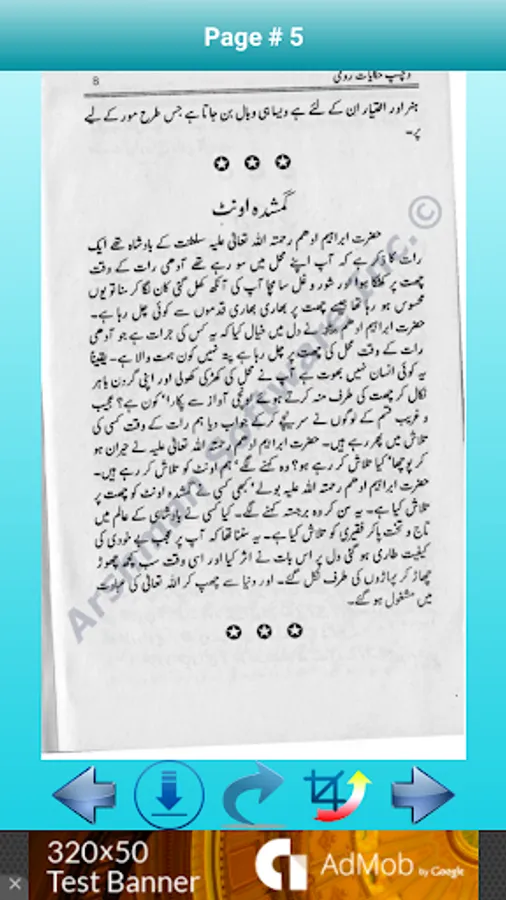 Page # 5
8
دلچسپ حکایات رومی
ہنر اور اختیار ان کے لئے ہے ویسا ہی وبال بن جاتا ہے جس طرح مور کے لیے
پر۔
گمشدہ اونٹ
حضرت ابراہیم ادھم رحمتہ اللہ تعالٰی علیہ سلطنت کے بادشاہ تھے ایک
رات کا ذکر ہے کہ آپ اپنے محل میں سو رہے تھے آدھی رات کے وقت
چھت پر کھٹکا ہوا اور شور و غل سا مچا آپ کی آنکھ کھل گئی کان لگا کر سنا تو یوں
محسوس ہو رہا تھا جیسے چھت پر بھاری بھاری قدموں سے کوئی چل رہا ہے۔
حضرت ابراہیم ادھم نے دل میں خیال کیا کہ یہ کس کی جرات ہے جو آدھی
رات کے وقت محل کی چھت پر چل رہا ہے پتہ نہیں کون ہمت والا ہے۔ یقیناً
یہ کوئی انسان نہیں بھوت ہے آپ نے محل کی کھڑکی کھولی اور اپنی گردن باہر
نکال کر چھت کی طرف منہ کرتے ہوئے اونچی آواز سے پکارا کون ہے؟ عجیب
و غریب قسم کے لوگوں نے سر نیچے کرکے جواب دیا ہم رات کے وقت کسی کی
تلاش میں پھر رہے ہیں۔ حضرت ابراہیم ادھم رحمتہ اللہ تعالٰی علیہ نے حیران ہو
کر پوچھا' کیا تلاش کر رہے ہو؟ وہ کہنے لگے' ہم اونٹ کو تلاش کر رہے ہیں۔
حضرت ابراہیم ادھم رحمتہ اللہ علیہ بولے' کبھی کسی نے گمشدہ اونٹ کو چھت پر
تلاش کیا ہے۔ یہ سن کر وہ برجستہ کہنے لگے۔ کیا کسی نے بادشاہی کے عالم میں
تاج و تخت پا کر فقیری کو تلاش کیا ہے۔ یہ سننا تھا کہ آپ پر عجب بے خودی کی
کیفیت طاری ہو گئی دل پر اس بات نے اثر کیا اور اسی وقت سب کچھ چھوڑ
چھاڑ کر پہاڑوں کی طرف نکل گئے۔ اور دنیا سے چھپ کر اللہ تعالٰی کی عبادت
میں مشغول ہو گئے۔
Arshman Software Inc. ©
320×50
Test Banner
AdMob by Google